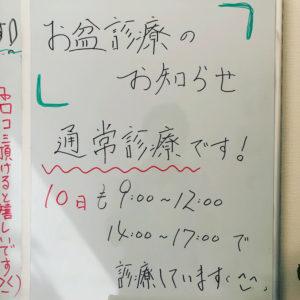 お盆診療の
お知らせ
通常診療です!
10日も9:00~12:00
14:00~17:00で
診療しています(^^)
口コミ頂けると嬉しいです